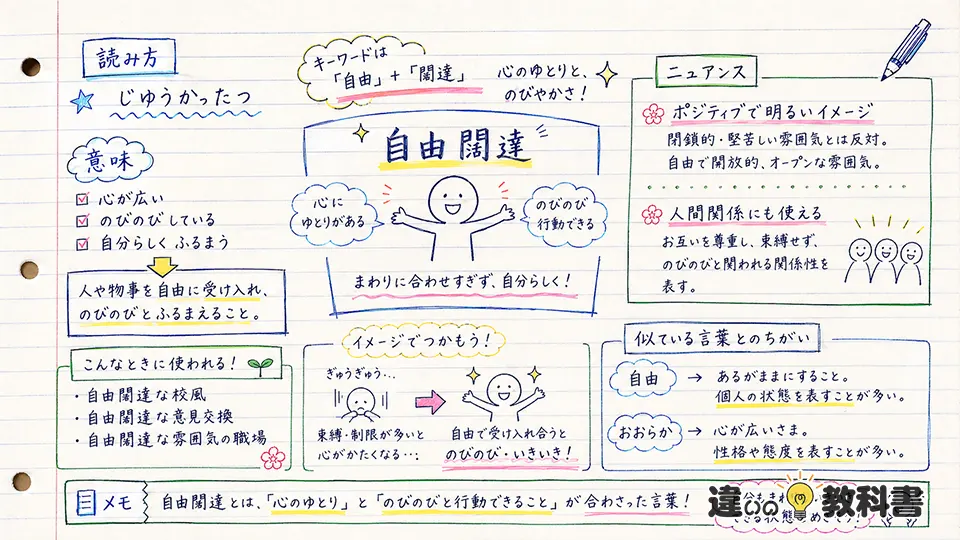 読み方
じゆうかったつ
意味
心が広い
のびのびしている
自分らしくふるまう
人や物事を自由に受け入れ、
のびのびとふるまえること。
キーワードは
「自由」+「闊達」
心のゆとりと、
のびやかさ!
自由闊達
心に
ゆとりがある
のびのび
行動できる
まわりに合わせすぎず、自分らしく!
ニュアンス
ポジティブで明るいイメージ
閉鎖的・堅苦しい雰囲気とは反対。
自由で開放的、オープンな雰囲気。
人間関係にも使える
お互いを尊重し、束縛せず、
のびのびと関われる関係性を
表す。
こんなときに使われる!
・自由闊達な校風
・自由闊達な意見交換
・自由闊達な雰囲気の職場
イメージでつかもう!
ぎゅうぎゅう…
束縛・制限が多いと
心がかたくなる…;
自由で受け入れ合うと
のびのび・いきいき!
似ている言葉とのちがい
自由 → あるがままにすること。
個人の状態を表すことが多い。
おおらか → 心が広いさま。
性格や態度を表すことが多い。
メモ
自由闊達とは、「心のゆとり」と「のびのびと行動できること」が合わさった言葉!
違いの教科書